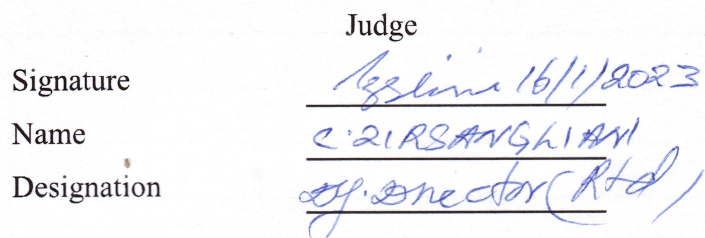 Judge
Signature 16/1/2023
Name C. ZIRSANGLIANI
Designation Dy. Director (Rtd)